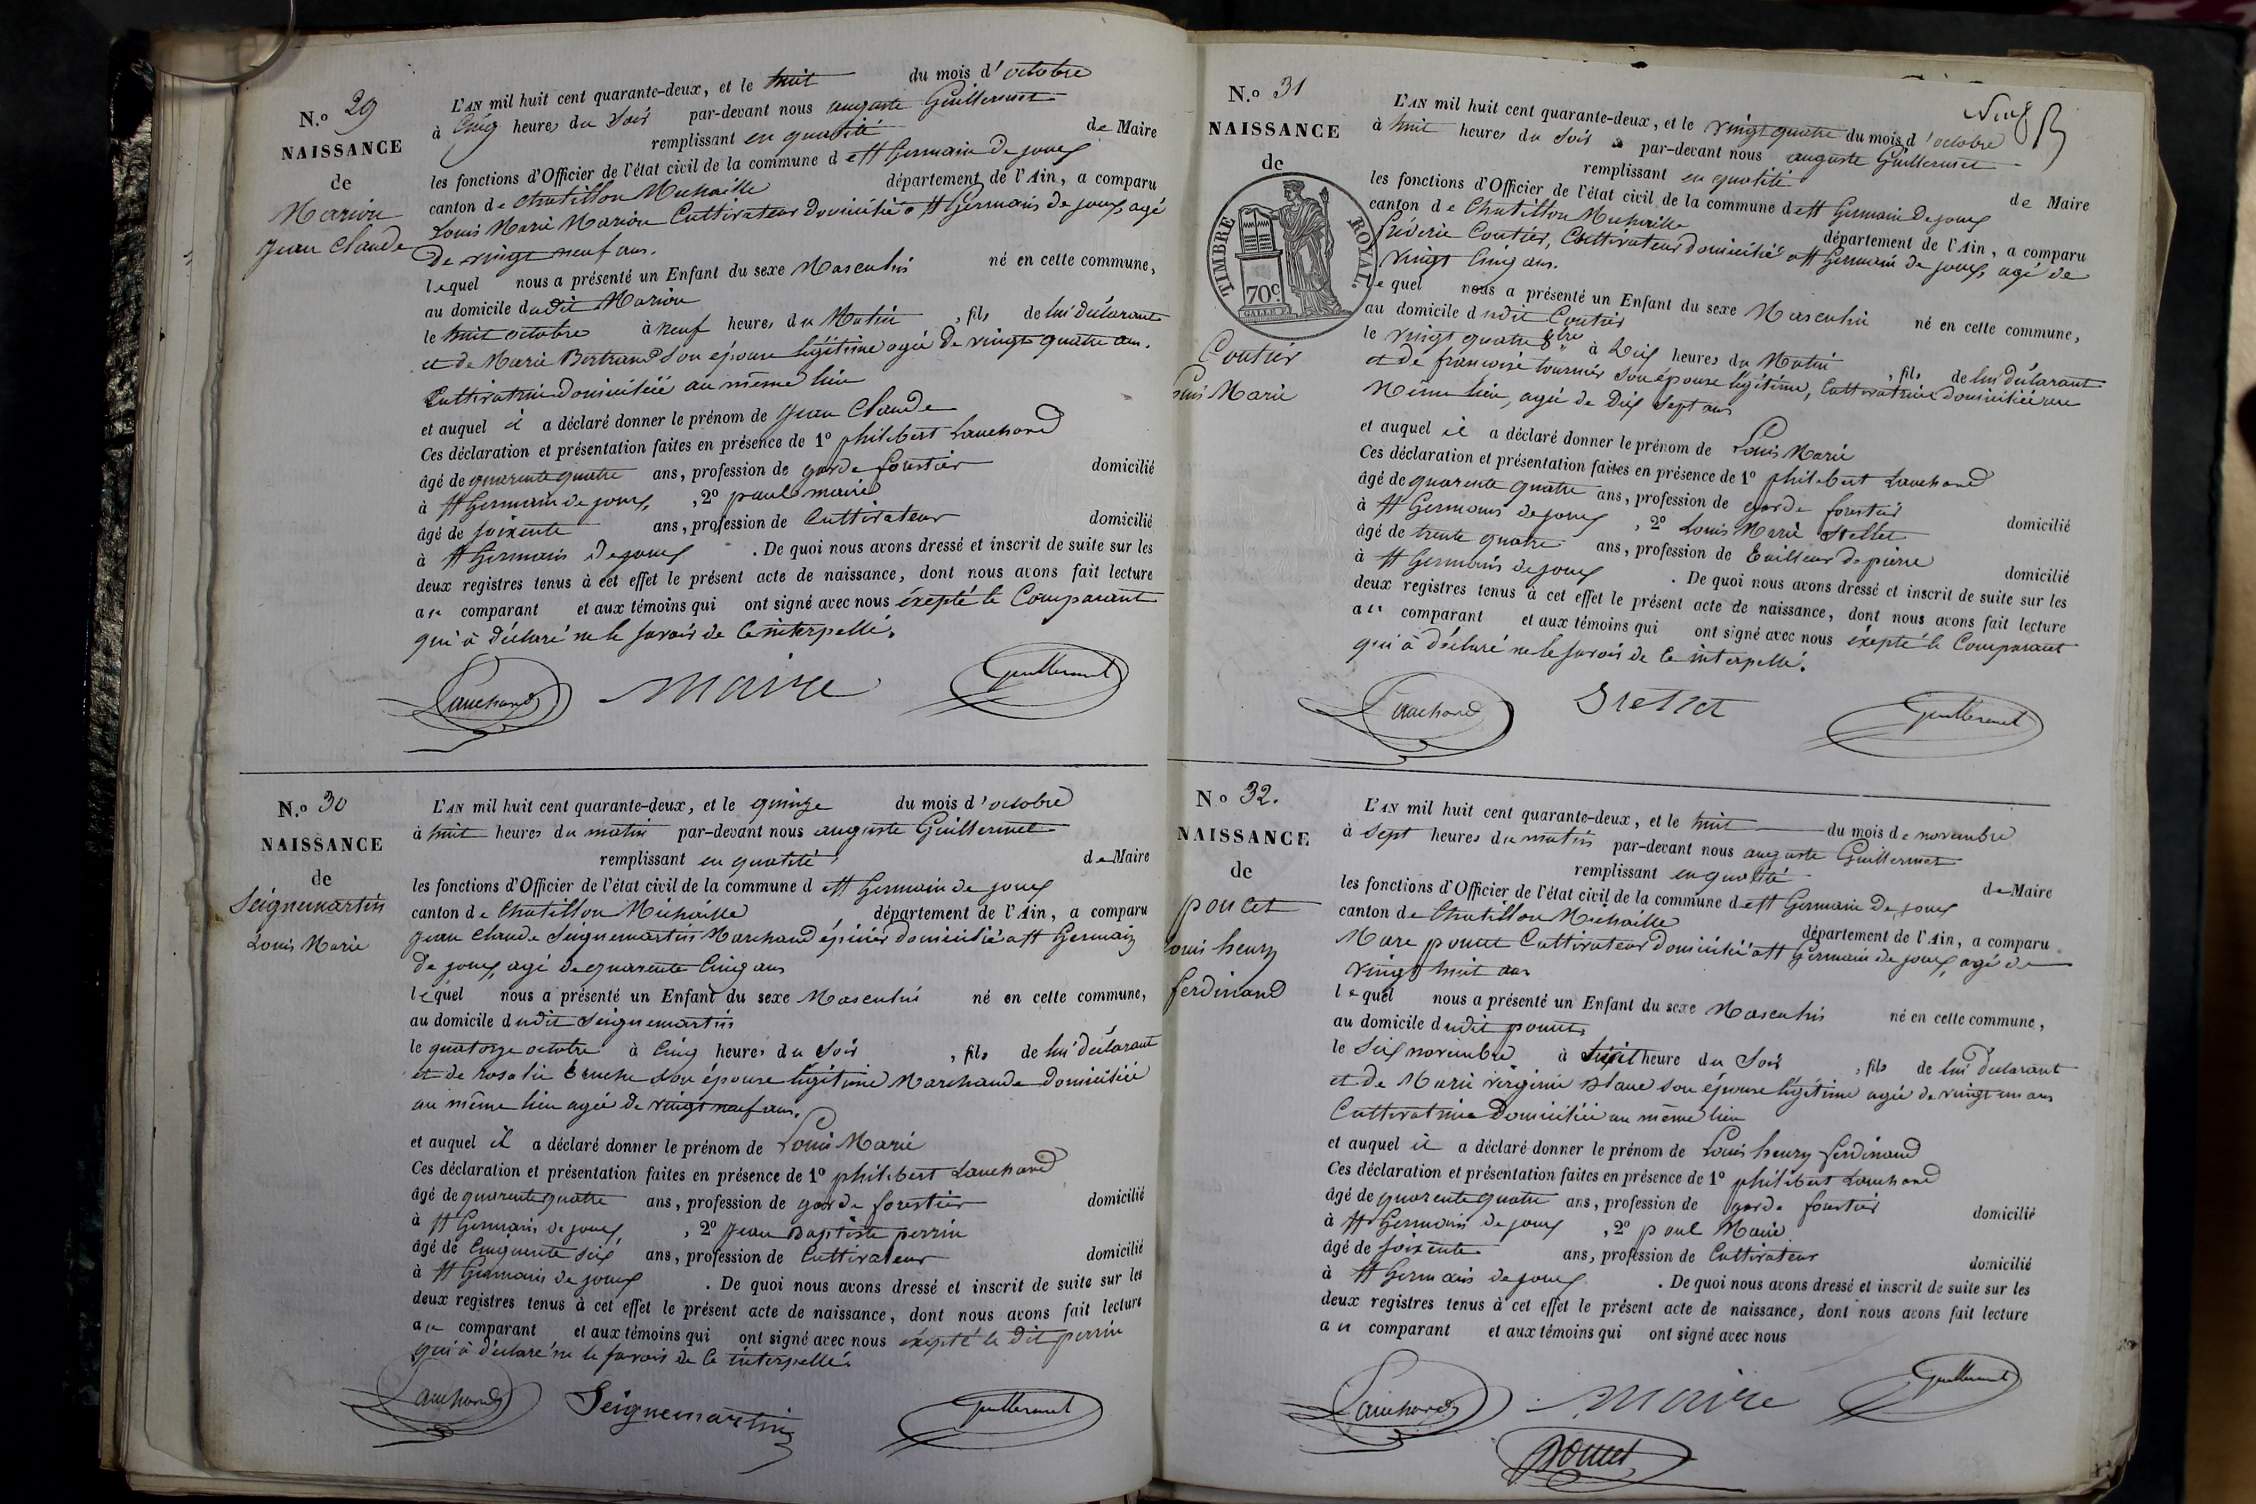 N.o 29
NAISSANCE
de
Marion
Jean Claude
L'AN mil huit cent quarante-deux, et le huit du mois d'octobre
à Cinq heures du Soir par-devant nous auguste Guillermet
remplissant en qualité de Maire
les fonctions d'Officier de l'état civil de la commune de St Germain De joux
canton de Chatillon Michaille département de l'Ain, a comparu
Louis Marie Marion Cultivateur Domicilié a St Germain de joux, agé
De vingt neuf ans.
lequel nous a présenté un Enfant du sexe Masculin né en cette commune,
au domicile dudit Marion
le huit octobre à neuf heures du Matin, fils de lui déclarant
et de Marie Bertrand Son épouse légitime agée De vingt quatre ans.
Cultivatrice Domiciliée au même lieu
et auquel il a déclaré donner le prénom de Jean Claude
Ces déclaration et présentation faites en présence de 1o philibert Lauchard
âgé de quarente quatre ans, profession de garde forestier domicilié
à St Germain de joux, 2o paul maire
âgé de soixente ans, profession de Cultivateur domicilié
à St Germain De joux. De quoi nous avons dressé et inscrit de suite sur les
deux registres tenus à cet effet le présent acte de naissance, dont nous avons fait lecture
au comparant et aux témoins qui ont signé avec nous éxepté le Comparant
qui à déclaré ne le savoir de Ce interpellé.
Lauchard Maire Guillermet
N.o 30
NAISSANCE
de
Seignemartin
Louis Marie
L'AN mil huit cent quarante-deux, et le quinze du mois d'octobre
à huit heures du matin par-devant nous auguste Guillermet
remplissant en qualité de Maire
les fonctions d'Officier de l'état civil de la commune d St Germain de joux
canton de Chatillon Michaille département de l'Ain, a comparu
Jean Claude Seignemartin Marchand épicier domicilié a St Germain
De joux, agé de quarente Cinq ans
lequel nous a présenté un Enfant du sexe Masculin né en cette commune,
au domicile dudit Seignemartin
le quatorze octobre à Cinq heures du Soir, fils de lui déclarant
et de rosalie Son épouse légitime Marchande domiciliée
au même lieu agée de vingt neuf ans.
et auquel il a déclaré donner le prénom de Louis Marie
Ces déclaration et présentation faites en présence de 1o philibert Lauchard
âgé de quarente quatre ans, profession de garde forestier domicilié
à St Germain de joux, 2o Jean Baptiste perrin
âgé de Cinquente Six ans, profession de Cultivateur domicilié
à St Germain de joux. De quoi nous avons dressé et inscrit de suite sur les
deux registres tenus à cet effet le présent acte de naissance, dont nous avons fait lecture
au comparant et aux témoins qui ont signé avec nous éxepté le Dit perrin
qui à déclaré ne le savoir de Ce interpellé.
Lauchard Seignemartin Guillermet
Neuf
N.o 31
NAISSANCE
de
TIMBRE ROYAL.
70c
Coutier
Louis Marie
L'AN mil huit cent quarante-deux, et le vingt quatre du mois d'octobre
à huit heures du Soir par-devant nous auguste Guillermet
remplissant en qualité de Maire
les fonctions d'Officier de l'état civil de la commune de St Germain De joux
canton de Chatillon Michaille département de l'Ain, a comparu
Coutier, Cultivateur domicilié a St Germain de joux, agé de
Vingt Cinq ans.
lequel nous a présenté un Enfant du sexe Masculin né en cette commune,
au domicile dudit Coutier
le vingt quatre 8bre à Dix heures du Matin, fils de lui déclarant
et de francoise tournier Son épouse légitime, Cultivatrice domiciliée
Même lieu, agée de Dix Sept ans
et auquel il a déclaré donner le prénom de Louis Marie
Ces déclaration et présentation faites en présence de 1o philibert Lauchard
âgé de quarente quatre ans, profession de garde forestier domicilié
à St Germain de joux, 2o Louis Marie
âgé de trente quatre ans, profession de tailleur de pierre domicilié
à St Germain de joux. De quoi nous avons dressé et inscrit de suite sur les
deux registres tenus à cet effet le présent acte de naissance, dont nous avons fait lecture
au comparant et aux témoins qui ont signé avec nous éxepté le Comparant
qui à déclaré ne le savoir de Ce interpellé.
Lauchard Guillermet
N.o 32.
NAISSANCE
de
poncet
Louis henry
ferdinand
L'AN mil huit cent quarante-deux, et le huit du mois de novembre
à sept heures du matin par-devant nous auguste Guillermet
remplissant en qualité de Maire
les fonctions d'Officier de l'état civil de la commune de St Germain De joux
canton de Chatillon Michaille département de l'Ain, a comparu
Marc poncet Cultivateur Domicilié a St Germain de joux, agé de
vingt huit ans
lequel nous a présenté un Enfant du sexe Masculin né en cette commune,
au domicile dudit poncet
le Six novembre à heure du Soir, fils de lui déclarant
et de Marie virginie Son épouse légitime agée de vingt un ans
Cultivatrice Domiciliée au même lieu
et auquel il a déclaré donner le prénom de Louis henry ferdinand
Ces déclaration et présentation faites en présence de 1o philibert Lauchard
âgé de quarente quatre ans, profession de garde forestier domicilié
à St Germain de joux, 2o paul Maire
âgé de soixente ans, profession de Cultivateur domicilié
à St Germain de joux. De quoi nous avons dressé et inscrit de suite sur les
deux registres tenus à cet effet le présent acte de naissance, dont nous avons fait lecture
au comparant et aux témoins qui ont signé avec nous
Lauchard Maire Guillermet
poncet